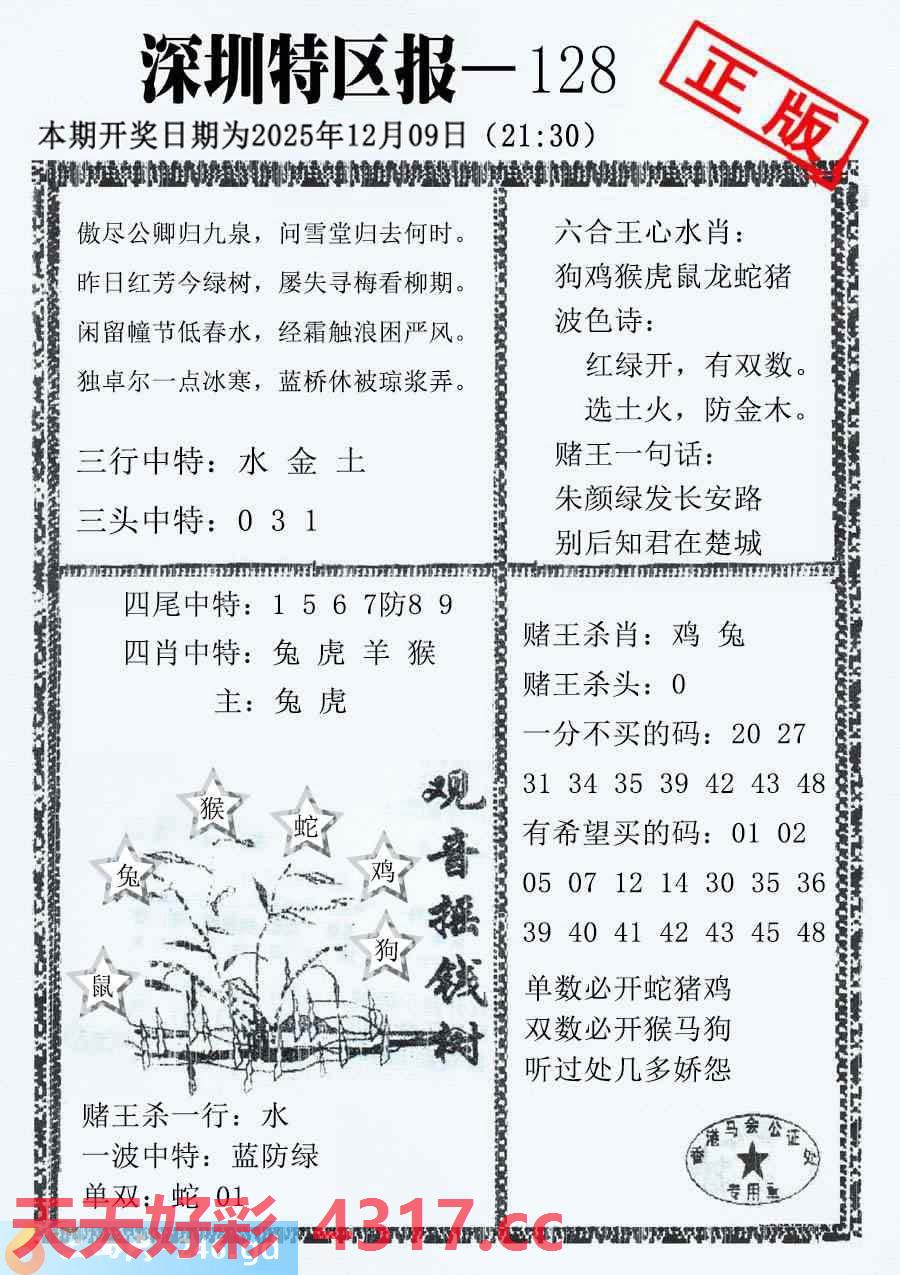 深圳特区报—128
正版
本期开奖日期为2025年12月09日（21:30）
傲尽公卿归九泉，问雪堂归去何时。
昨日红芳今绿树，屡失寻梅看柳期。
闲留幢节低春水，经霜触浪困严风。
独卓尔一点冰寒，蓝桥休被琼浆弄。
三行中特：水 金 土
三头中特：0 3 1
六合王心水肖：
狗鸡猴虎鼠龙蛇猪
波色诗：
红绿开，有双数。
选土火，防金木。
赌王一句话：
朱颜绿发长安路
别后知君在楚城
四尾中特：1 5 6 7防8 9
四肖中特：兔 虎 羊 猴
主：兔 虎
猴
蛇
兔
鸡
狗
鼠
观音摇钱树
赌王杀一行：水
一波中特：蓝防绿
单双：蛇 01
赌王杀肖：鸡 兔
赌王杀头：0
一分不买的码：20 27
31 34 35 39 42 43 48
有希望买的码：01 02
05 07 12 14 30 35 36
39 40 41 42 43 45 48
单数必开蛇猪鸡
双数必开猴马狗
听过处几多娇怨
香港马会公证处
专用章
天天好彩 4317.cc